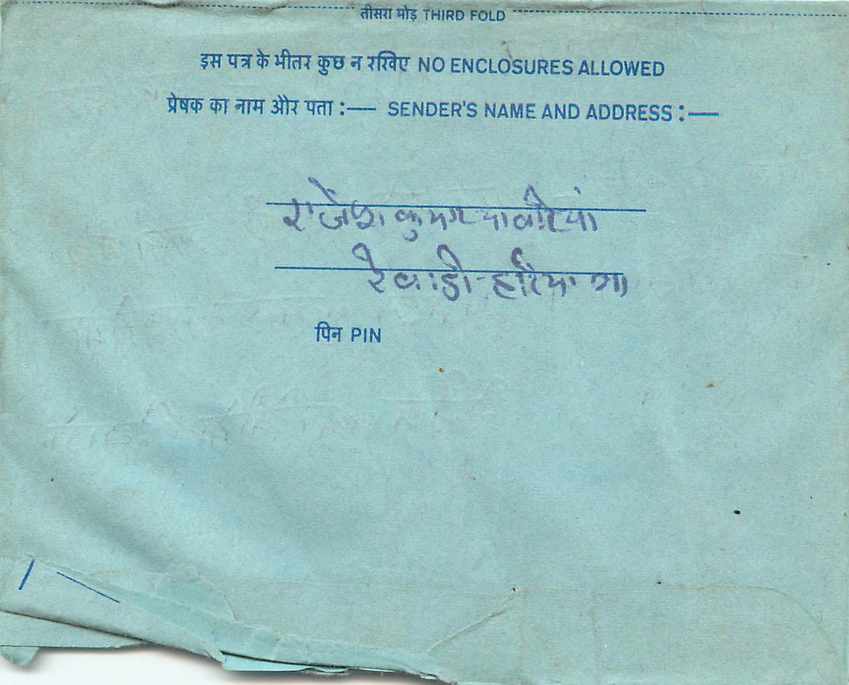 तीसरा मोड़ THIRD FOLD
इस पत्र के भीतर कुछ न रखिए NO ENCLOSURES ALLOWED
प्रेषक का नाम और पता :— SENDER'S NAME AND ADDRESS :—
राजेश कुमार
रेवाडी-हरियाणा
पिन PIN